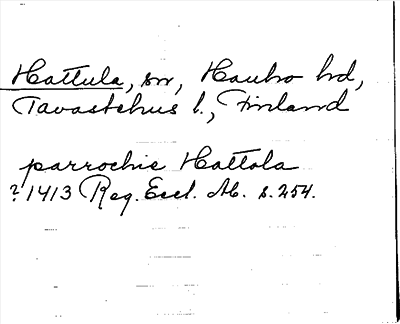 Hattula, sn, Hauho hd,
Tavastehus l., Finland
parrochie Hattola
? 1413 Reg. Eccl. Ab. s. 254.